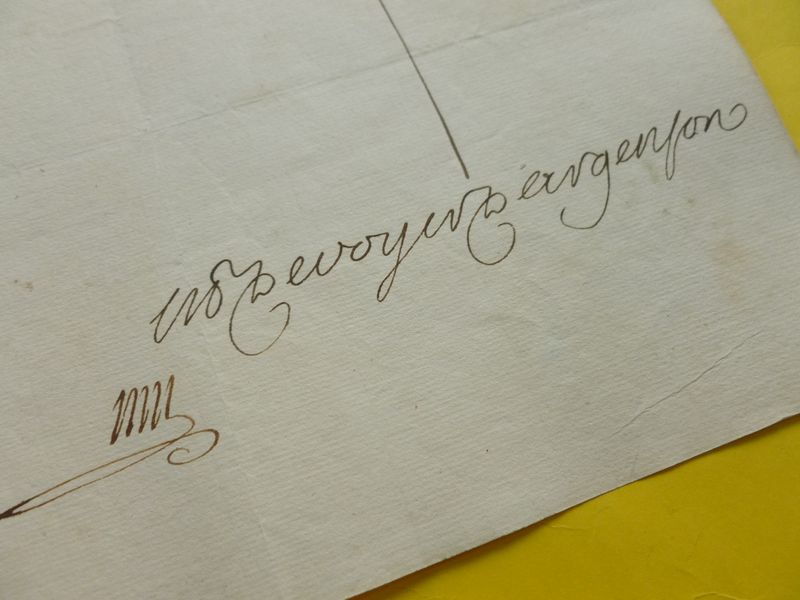 De voyer D'argenson